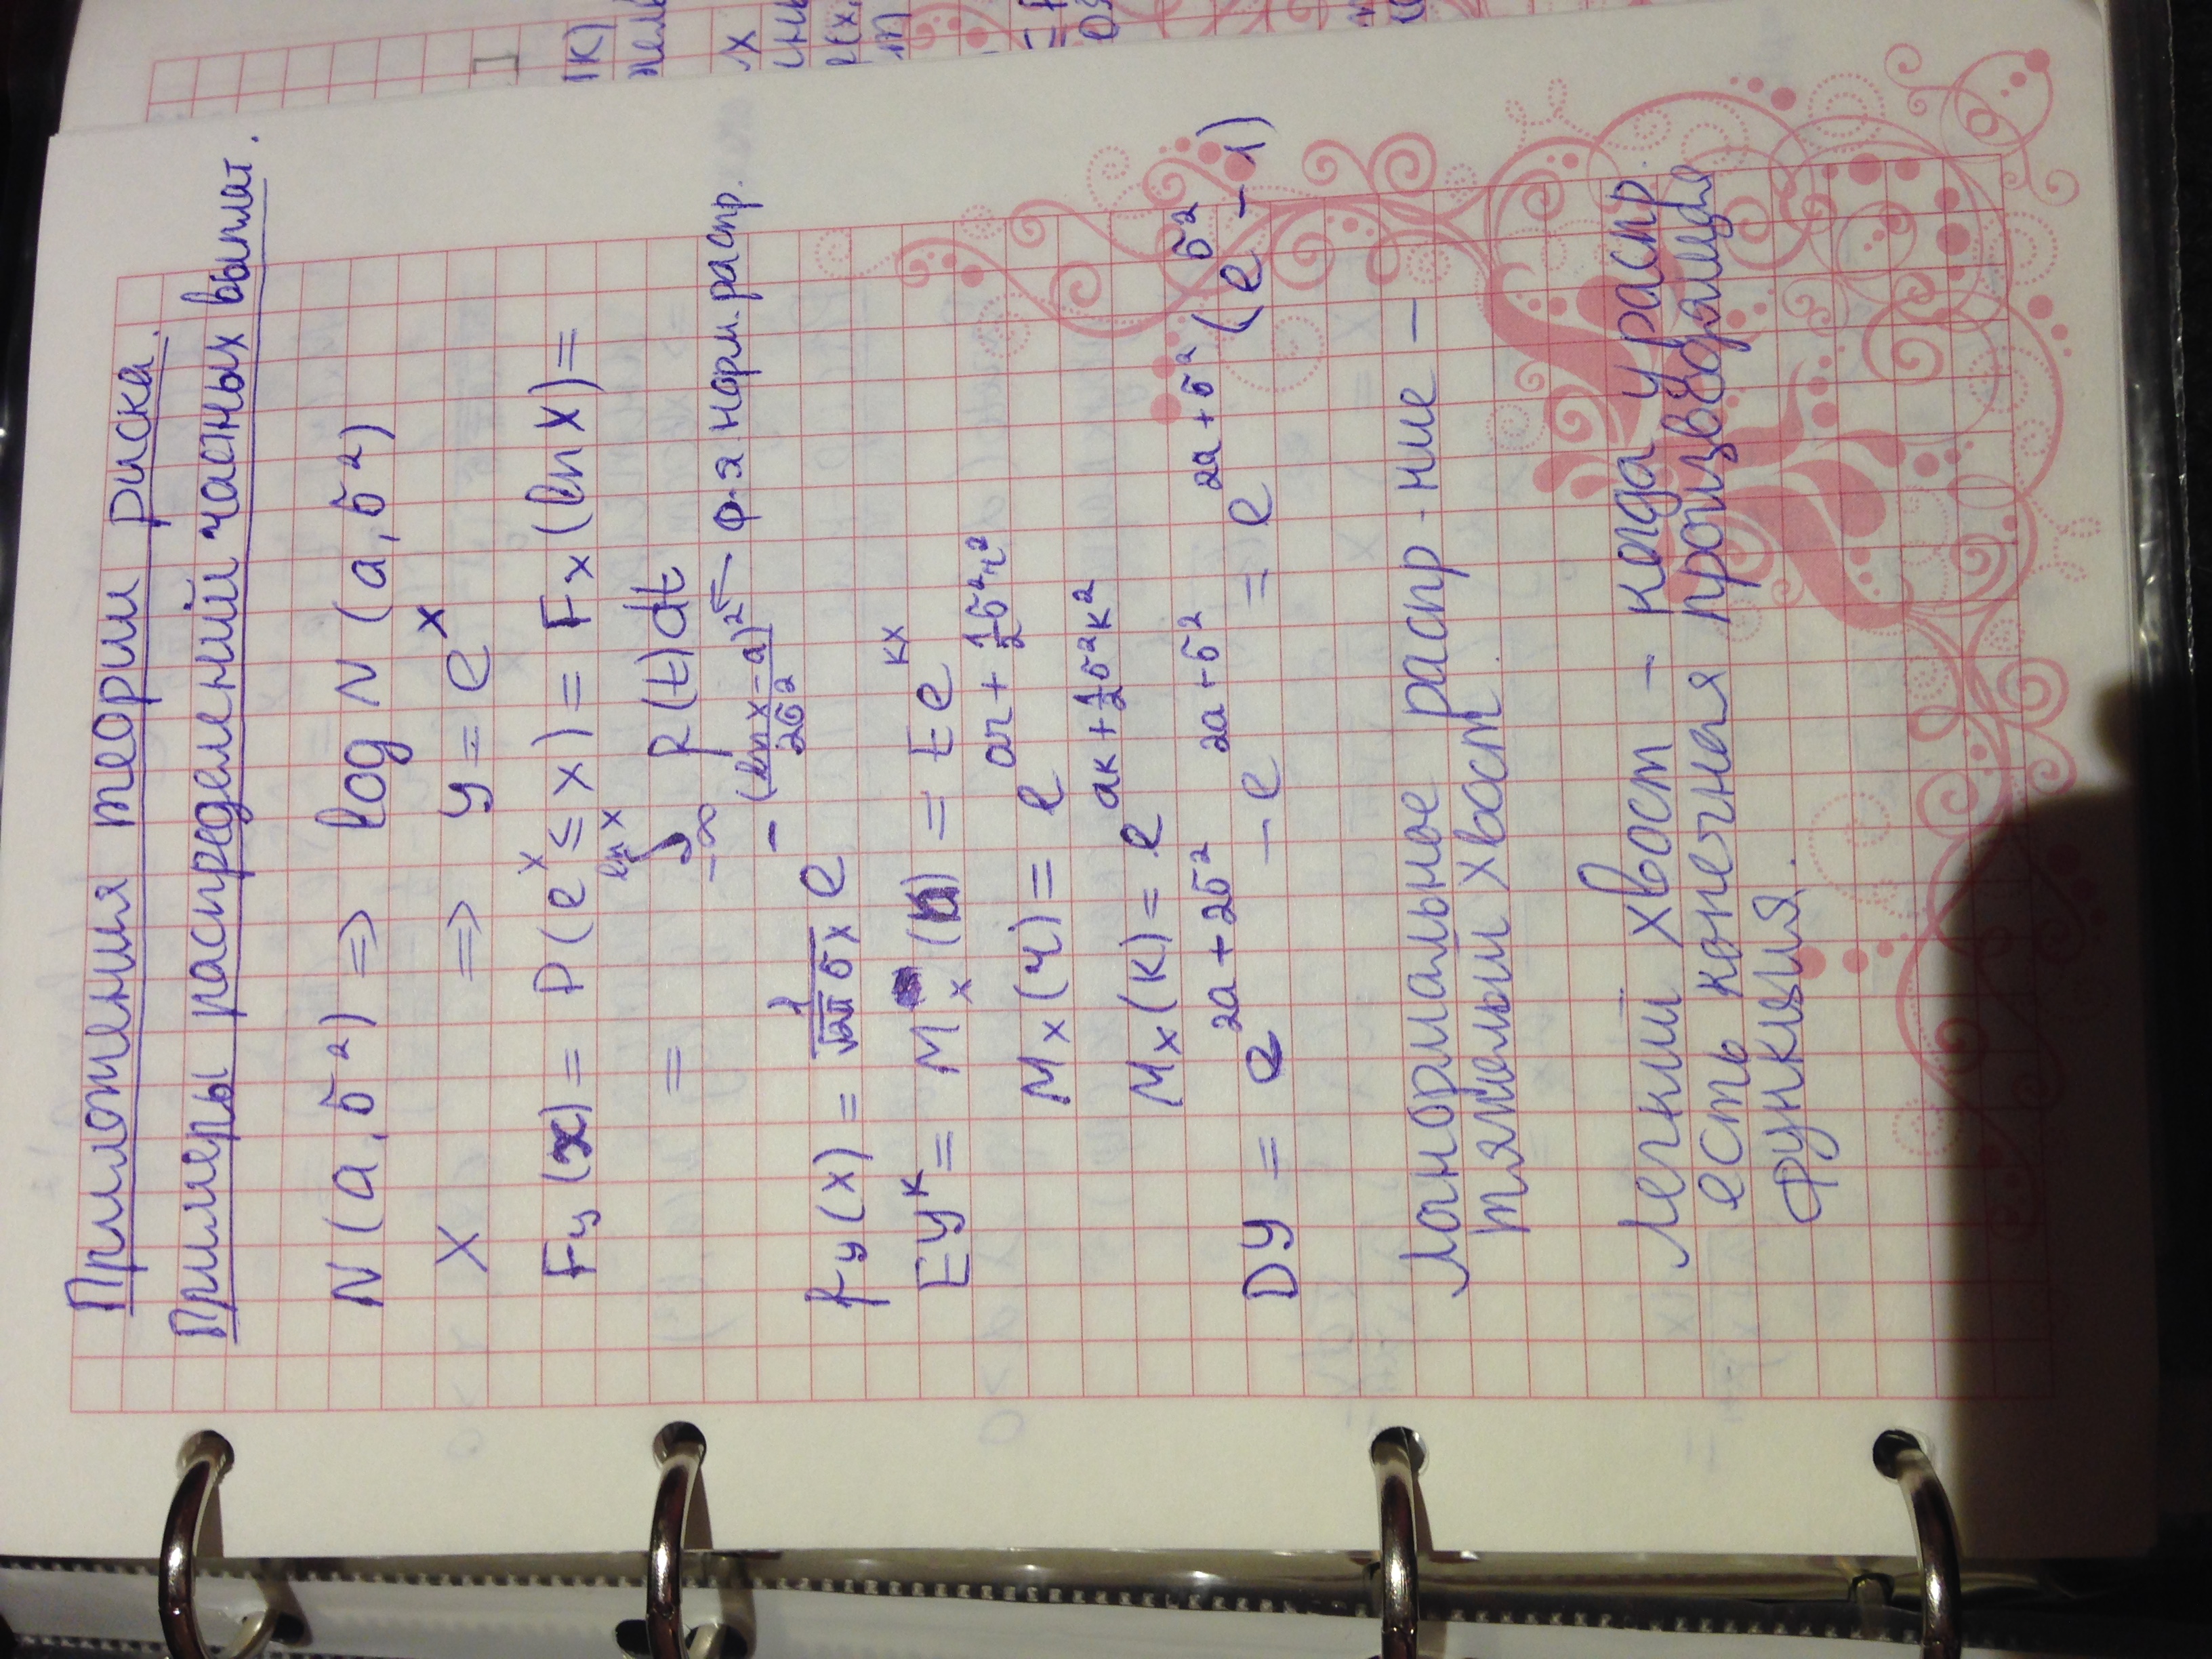 Приложения теории риска.
Примеры распределений частных выплат.
N (a, σ²) ⇒ log N (a, σ²)
X ⇒ y = e^x
F_y (x) = P(e^x ≤ x) = F_x (ln x) =
= ∫_{-∞}^{ln x} p(t) dt
f_y (x) = 1/(√2π σ x) e^{-(ln x - a)²/2σ²} - ф-я норм. распр.
E y^k = M_x (k) = E e^{kx}
M_x (r) = e^{ar + 1/2 σ² r²}
M_x (k) = e^{ak + 1/2 σ² k²}
Dy = e^{2a + 2σ²} - e^{2a + σ²} = e^{2a + σ²} (e^{σ²} - 1)
Лонормальное распр-ние -
тяжелый хвост
Легкий хвост - когда у распр
есть конечная производящая
функция.